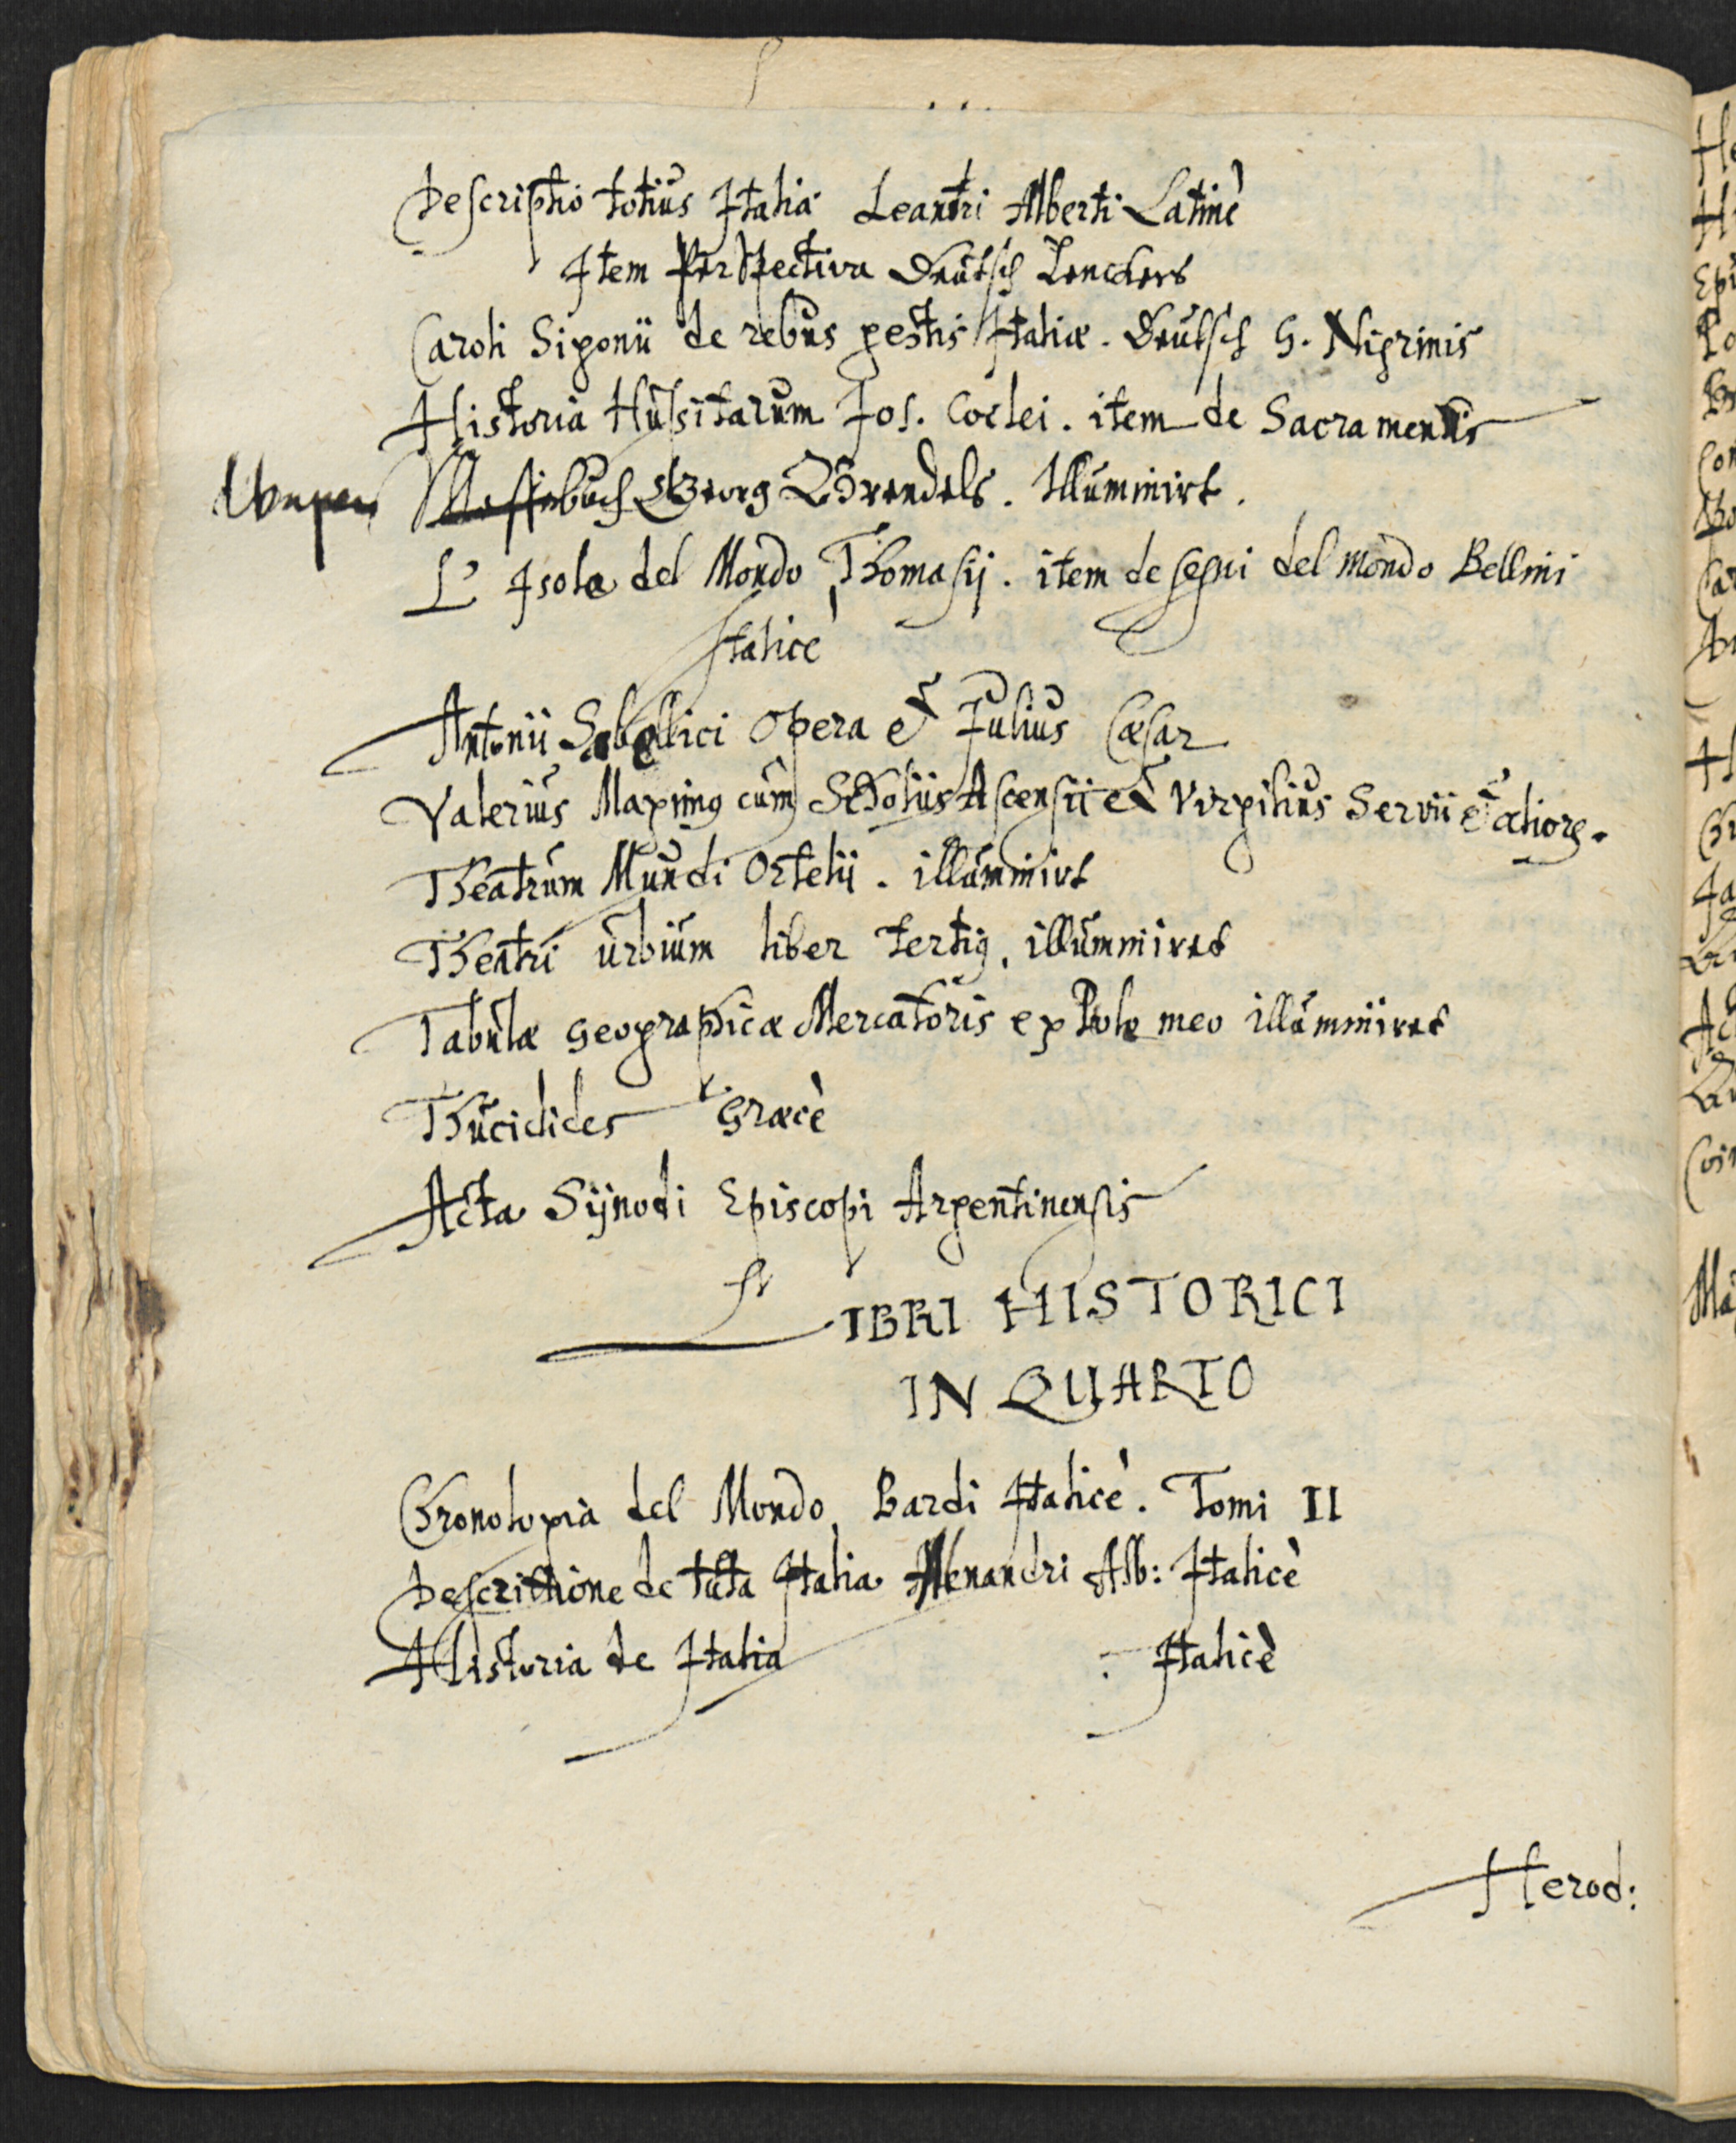 Descriptio totius Italiæ Leandri Alberti Latinè
Item Perspectiva Deutsch Lenckers
Caroli Sigonii de rebus gestis Italiæ. Deutsch G. Nigrinis
Historia Husitarum Jos. Coclei. item de Sacramentis
Wapen buch Georg Brendels. Illuminirt.
L' Isole del Mondo Thomasij. item desegni del mondo Bellini
Italicè
Antonii Sabellici Opera et Julius Cæsar
Valerius Maximus cum Scholiis Ascensii et Virgilius Servii et aliore.
Theatrum Mundi Ortelij. illuminirt
Theatri urbium liber tertius. illuminiret
Tabulæ geographicæ Mercatoris ex Ptolemeo illuminiret
Thucidides Græcè
Acta Sijnodi Episcopi Argentinensis
LIBRI HISTORICI
IN QUARTO
Chronologia del Mondo Bardi Italicè. Tomi II
Descrittione de tuta Italia Alb: Italicè
Historia de Italia Italicè
Herod: